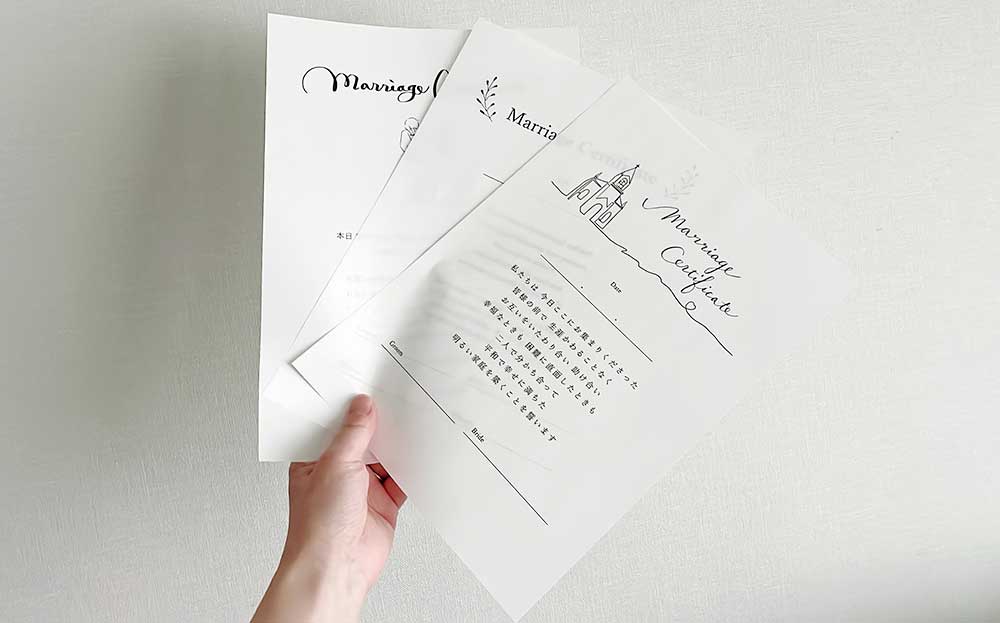 Marriage
本日
Marria
Certificate
Marriage
Certificate
Date
私たちは 今日ここにお集まりくださった
皆様の前で 生涯かわることなく
お互いをいたわり合い 助け合い
幸福なときも 困難に直面したときも
二人で分かち合って
平和で幸せに満ちた
明るい家庭を築くことを誓います
Groom
Bride